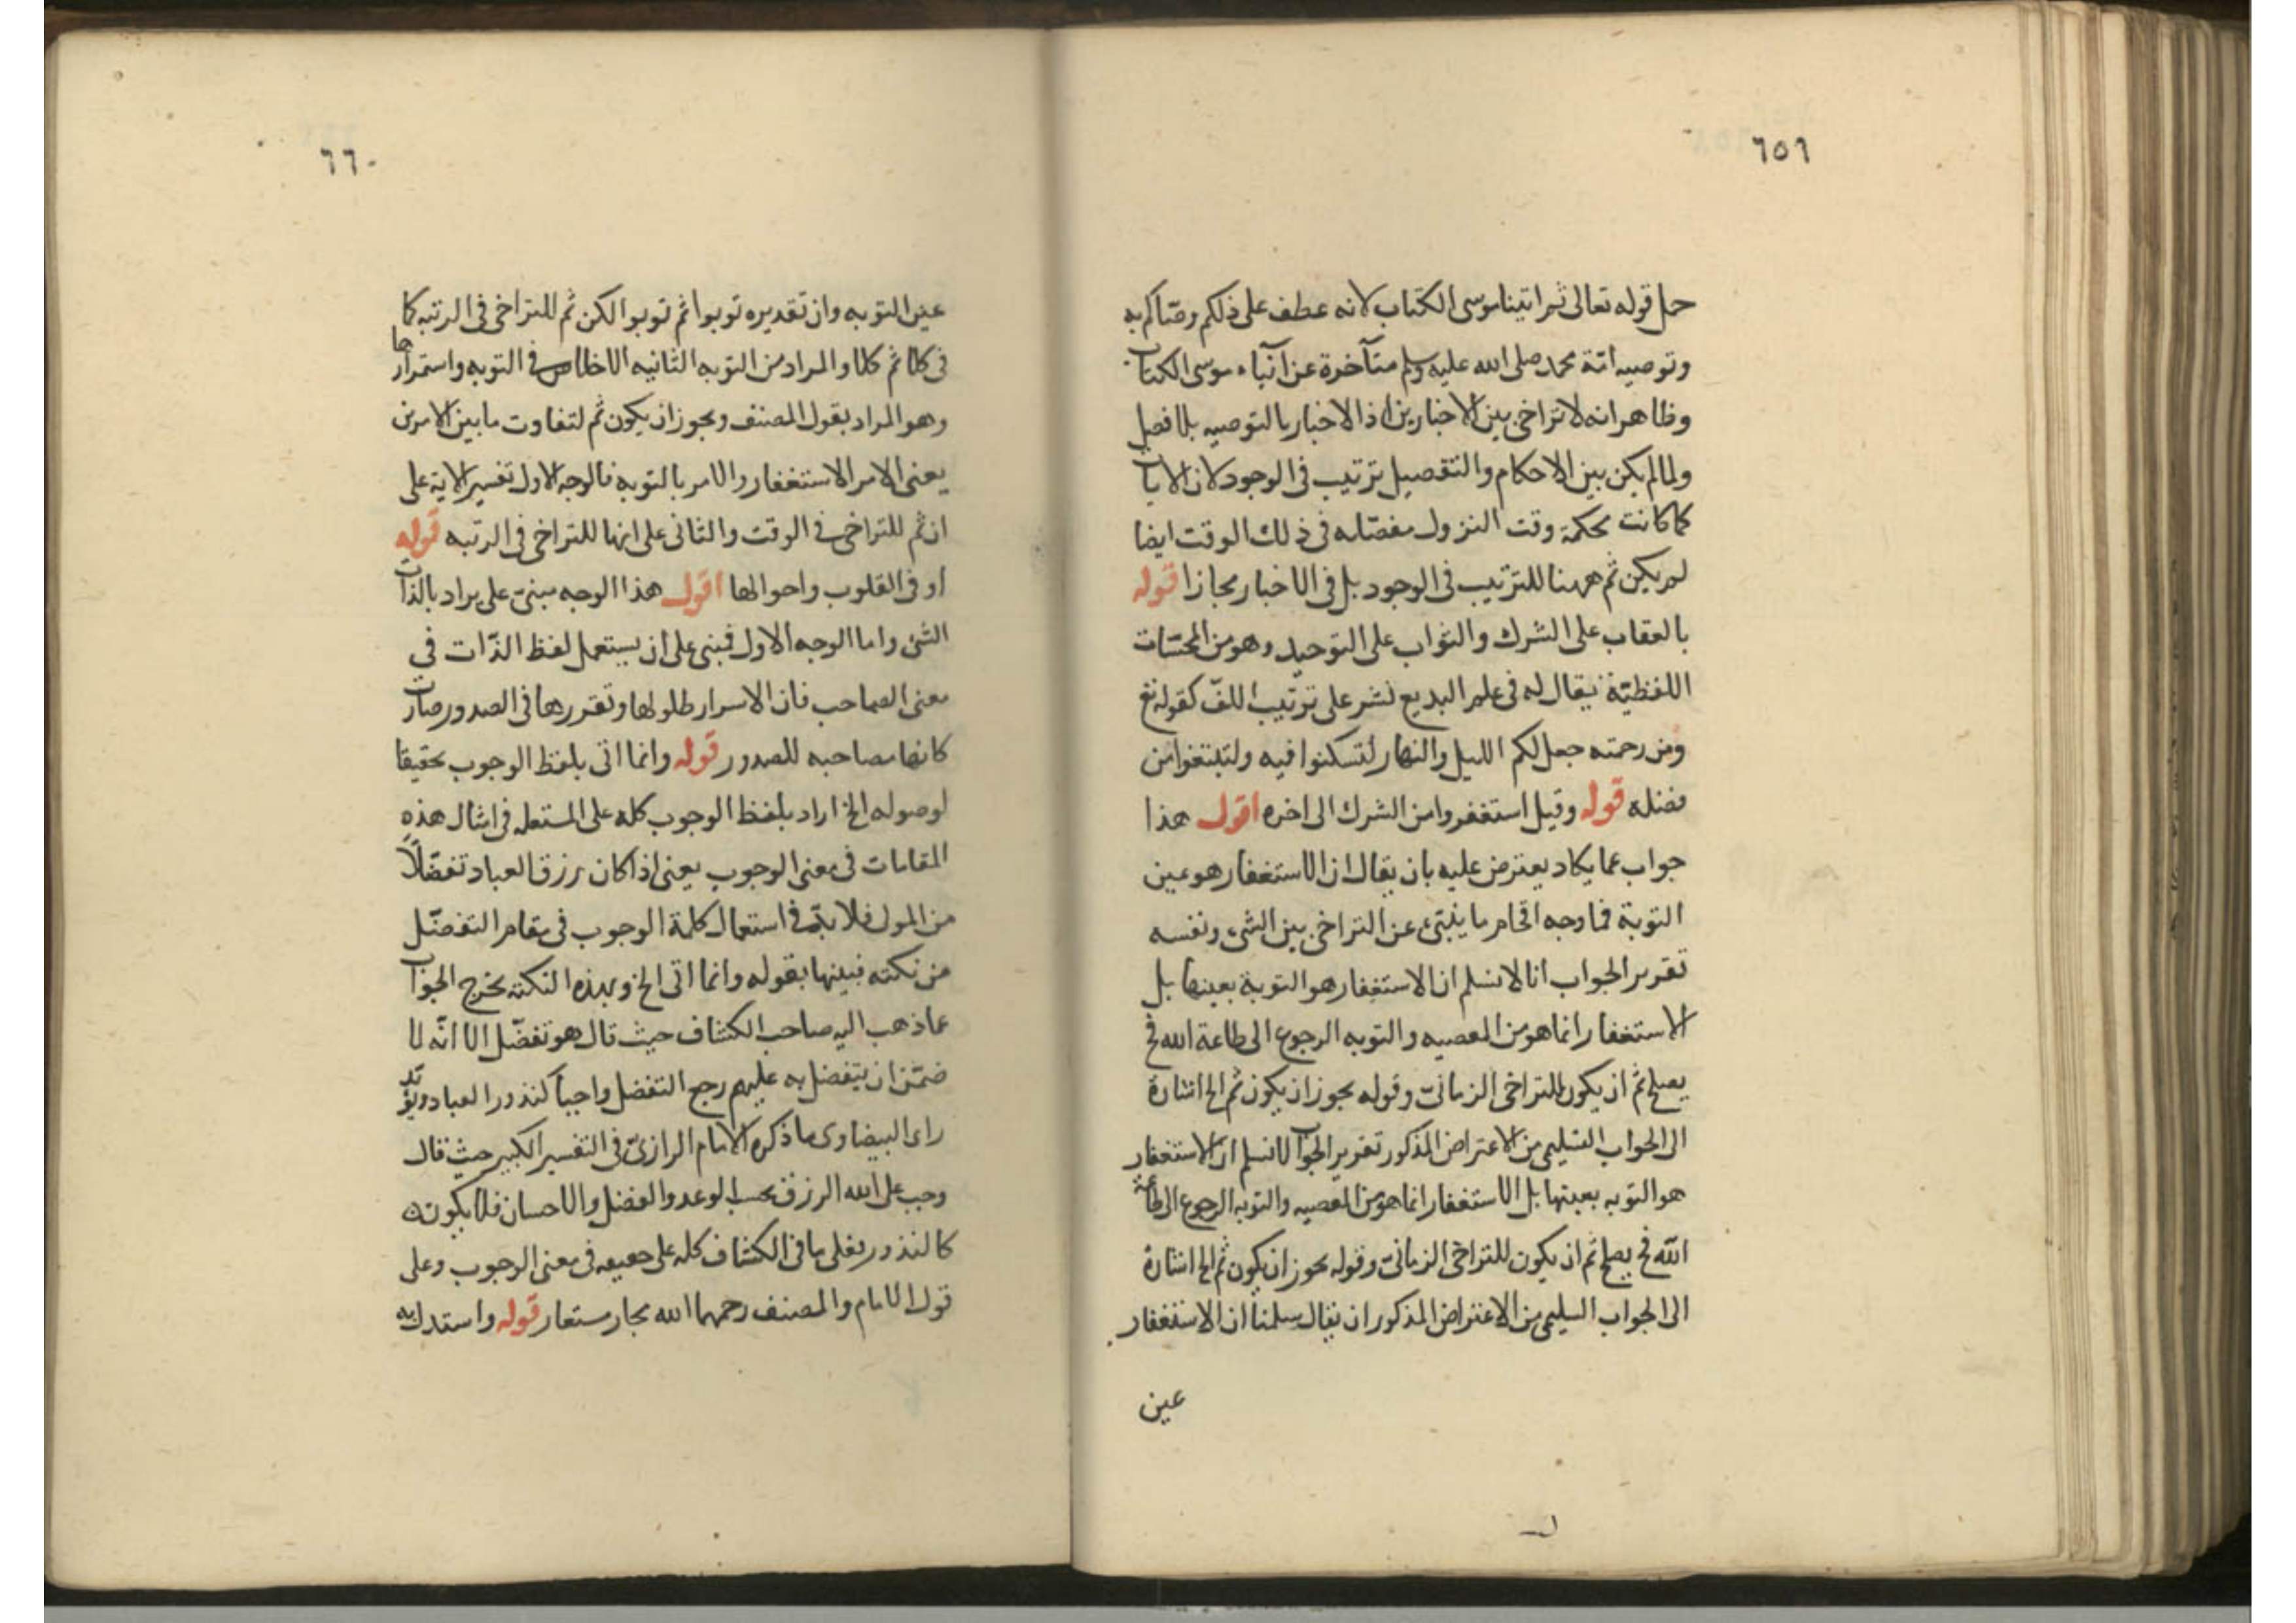 ٦٥٩
حمل قوله تعالى ثم اتينا موسى الكتاب لانه عطف على ذلكم وصّاكم به
وتوصيه امّة محمد صلى الله عليه وسلم متأخرة عن آتياء موسى الكتاب
وظاهر انه لا تراخى بين الاخبارين اذ الاخبار بالتوصيه بلا فصل
ولما لم يكن بين الاحكام والتفصيل ترتيب فى الوجود لان الايات
كما كانت محكمة وقت النزول مفصّله فى ذلك الوقت ايضا
لم يكن ثم ههنا للترتيب فى الوجود بل فى الاخبار مجازا قوله
بالعقاب على الشرك والثواب على التوحيد وهو من المحسّنات
اللفظيّة يقال له فى علم البديع نشر على ترتيب اللفّ كقوله تع
ومن رحمته جعل لكم الليل والنهار لتسكنوا فيه ولتبتغوا من
فضله قوله وقيل استغفروا من الشرك الى اخره اقول هذا
جواب عما يكاد يعترض عليه بان يقال ان الاستغفار هو عين
التوبة فما وجه اقحام ما ينبئ عن التراخى بين الشئ ونفسه
تقرير الجواب انا لا نسلم ان الاستغفار هو التوبة بعينها بل
الاستغفار انما هو من المعصيه والتوبه الرجوع الى طاعة الله فح
يصلح ثم ان يكون للتراخى الزمانى وقوله يجوز ان يكون ثم الخ اشارة
الى الجواب التسليمى من الاعتراض المذكور تقرير الجواب لا نسلم ان الاستغفار
هو التوبه بعينها بل الاستغفار انما هو من المعصيه والتوبه الرجوع الى طاعة
الله فح يصلح ثم ان يكون للتراخى الزمانى وقوله يجوز ان يكون ثم الخ اشارة
الى الجواب السليمى من الاعتراض المذكور ان يقال سلمنا ان الاستغفار
عين
٦٦٠
عين التوبه وان تقديره توبوا ثم توبوا لكن ثم للتراخى فى الرتبه كما
فى كلا ثم كلا والمراد من التوبه الثانيه الاخلاص فى التوبه واستمرارها
وهو المراد بقول المصنف ويجوز ان يكون ثم لتفاوت ما بين الامرين
يعنى الامر الاستغفار والامر بالتوبه فالوجه الاول تفسير الاية على
ان ثم للتراخى فى الوقت والثانى على انها للتراخى فى الرتبه قوله
او فى القلوب واحوالها اقول هذا الوجه مبنى على يراد بالذات
الشئ واما الوجه الاول فبنى على ان يستعمل لفظ الذّات فى
معنى الصاحب فان الاسرار طلولها وتقررها فى الصدور صارت
كانها مصاحبه للصدور قوله وانما اتى بلفظ الوجوب تحقيقا
لوصوله الخ اراد بلفظ الوجوب كلمه على المستعمله فى امثال هذه
المقامات فى معنى الوجوب يعنى اذا كان رزق العباد تفضّلاً
من المولى فلا بدّ فى استعمال كلمة الوجوب فى مقام التفضّل
من نكته فبينها بقوله وانما اتى الخ وبهذه النكته يخرج الجواب
عما ذهب اليه صاحب الكشاف حيث قال هو تفضّل الا انّه لما
ضمّن ان يتفضل به عليهم رجع التفضل واجباً كنذور العباد ويؤيد
راى البيضاوى ما ذكره الامام الرازى فى التفسير الكبير حيث قال
وجب على الله الرزق بحسب الوعد والفضل والاحسان فلا يكون
كالنذور فعلى ما فى الكشاف كله على حقيقه فى معنى الوجوب وعلى
قول الامام والمصنف رحمهما الله مجاز مستعار قوله واستدل به